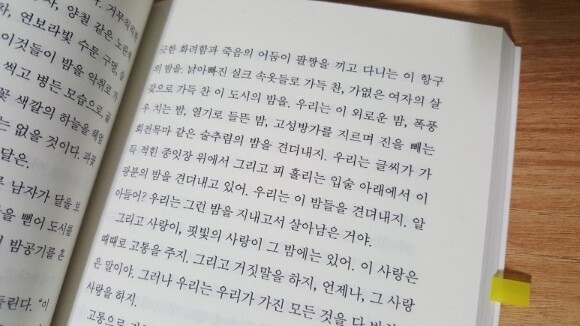 거무칙칙한
자, 양철 같은 노란색
차, 연보랏빛 수문 구멍, 술
이것들이 밤을 악취로 가
씩고 병든 모습으로, 골
꽃 색깔의 하늘을 해업
는 없을 것이다. 피꽃
달은.
남자가 달을 보
을 뺀이 도시를
밤공기를 흔
들린다. "이
긋한 화려함과 죽음의 어둠이 팔짱을 끼고 다니는 이 항구
의 밤을. 낡아빠진 실크 속옷들로 가득 찬, 가엾은 여자의 살
갗으로 가득 찬 이 도시의 밤을. 우리는 이 외로운 밤, 폭풍
우 치는 밤, 열기로 들뜬 밤, 고성방가를 지르며 진을 빼는
회전목마 같은 술추렴의 밤을 견뎌내지. 우리는 글씨가 가
득 적힌 종잇장 위에서 그리고 피 흘리는 입술 아래에서 이
광분의 밤을 견뎌내고 있어. 우리는 이 밤들을 견뎌내지. 알
아들어? 우리는 그런 밤을 지내고서 살아남은 거야.
그리고 사랑이, 핏빛의 사랑이 그 밤에는 있어. 이 사랑은
때때로 고통을 주지. 그리고 거짓말을 하지, 언제나, 그 사랑
은 말이야. 그러나 우리는 우리가 가진 모든 것을 다
사랑을 하지.
고통으로